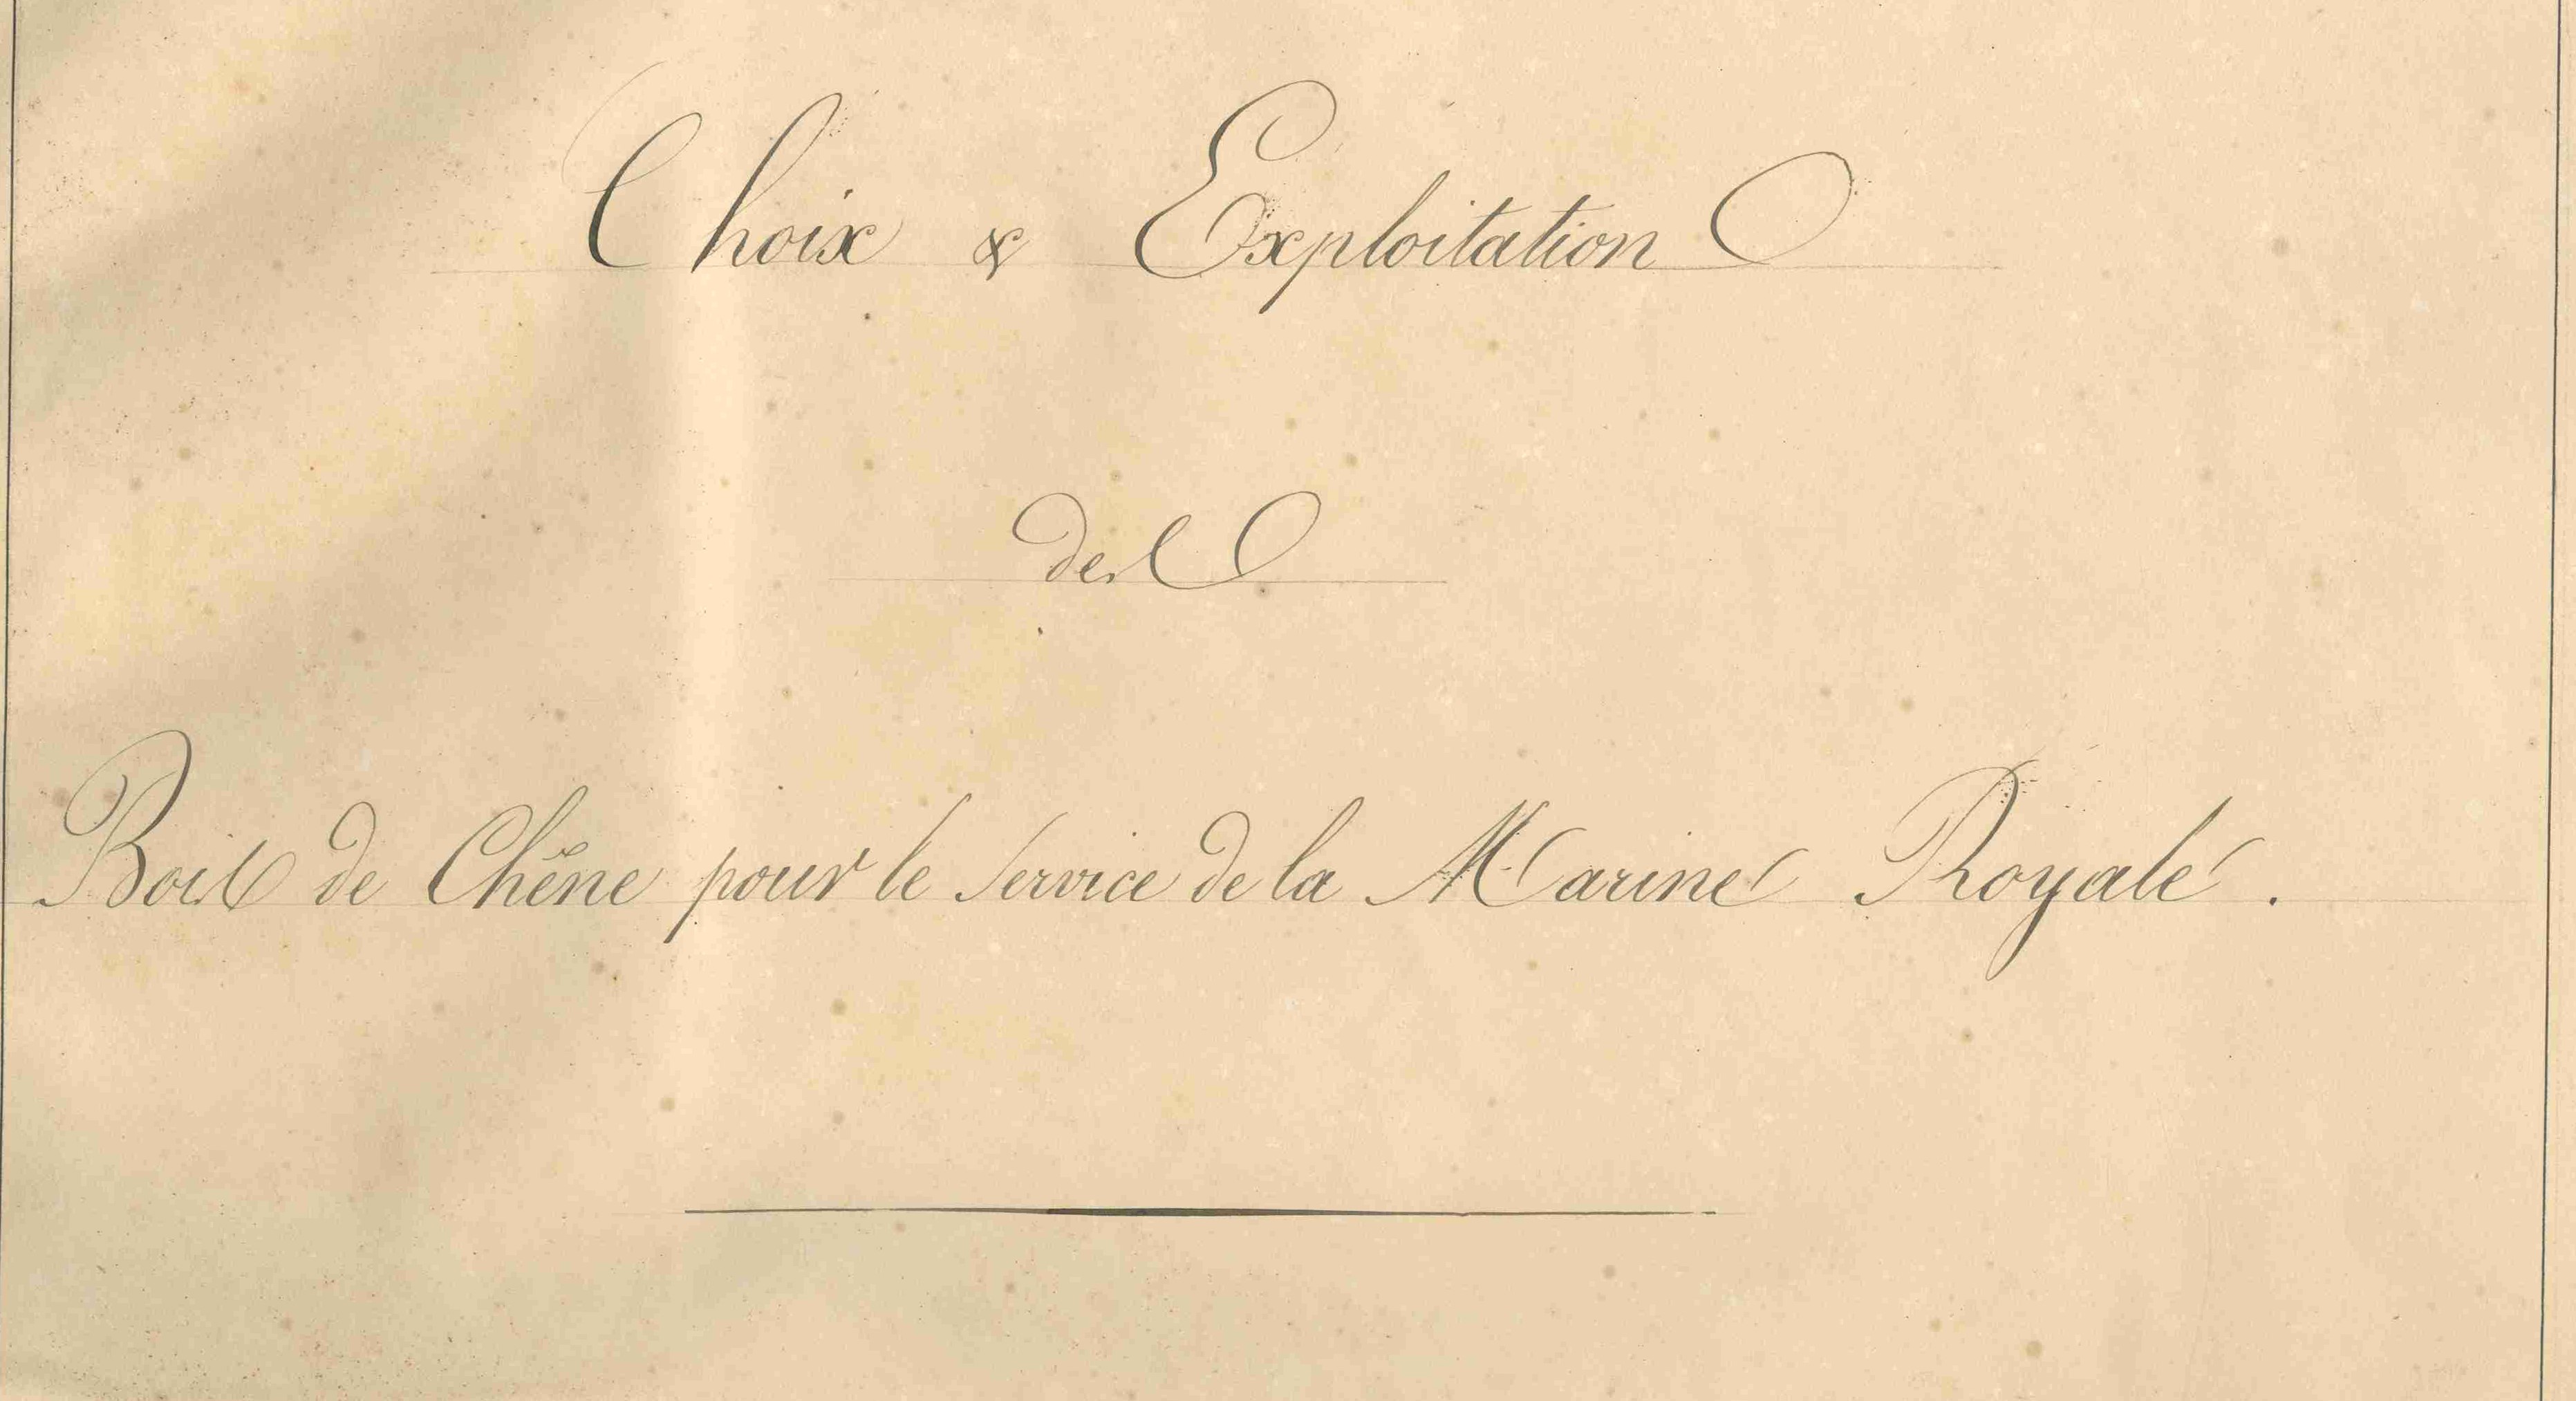 Choix & Exploitation
des
Bois de Chêne pour le Service de la Marine Royale.